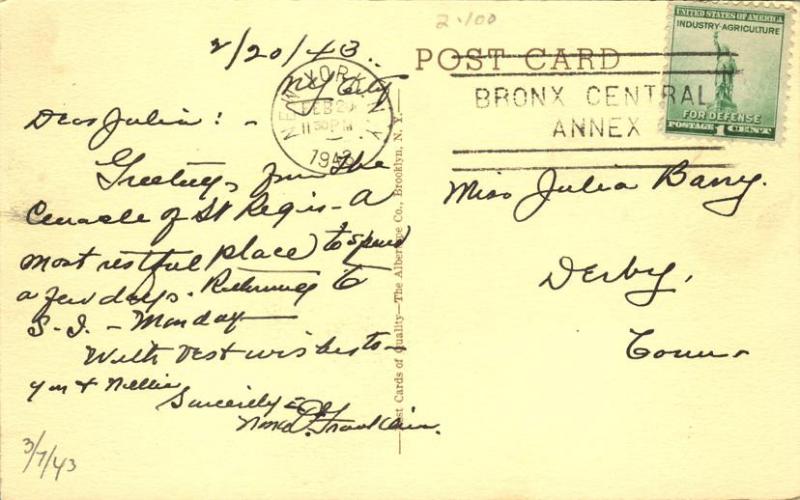 2.100
2/20/43
NY City
Dear Julia: -
Greetings from the
Cenacle of St Regis - A
most restful place to spend
a few days. Returning to
S. I. - Monday
With best wishes to -
you & Nellie
Sincerely
Franklin.
3/7/43
NEW YORK, N.Y.
FEB 2
11 30 PM
1943
POST CARD
BRONX CENTRAL
ANNEX
UNITED STATES OF AMERICA
INDUSTRY-AGRICULTURE
FOR DEFENSE
POSTAGE 1 CENT
Miss Julia Barry.
Derby,
Conn.
Post Cards of Quality—The Albertype Co., Brooklyn, N. Y.